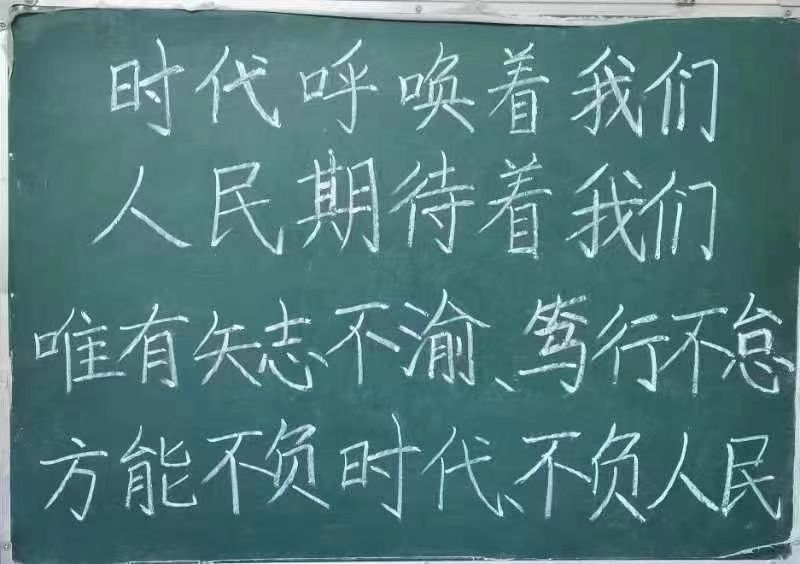 时代呼唤着我们
人民期待着我们
唯有矢志不渝、笃行不怠
方能不负时代、不负人民